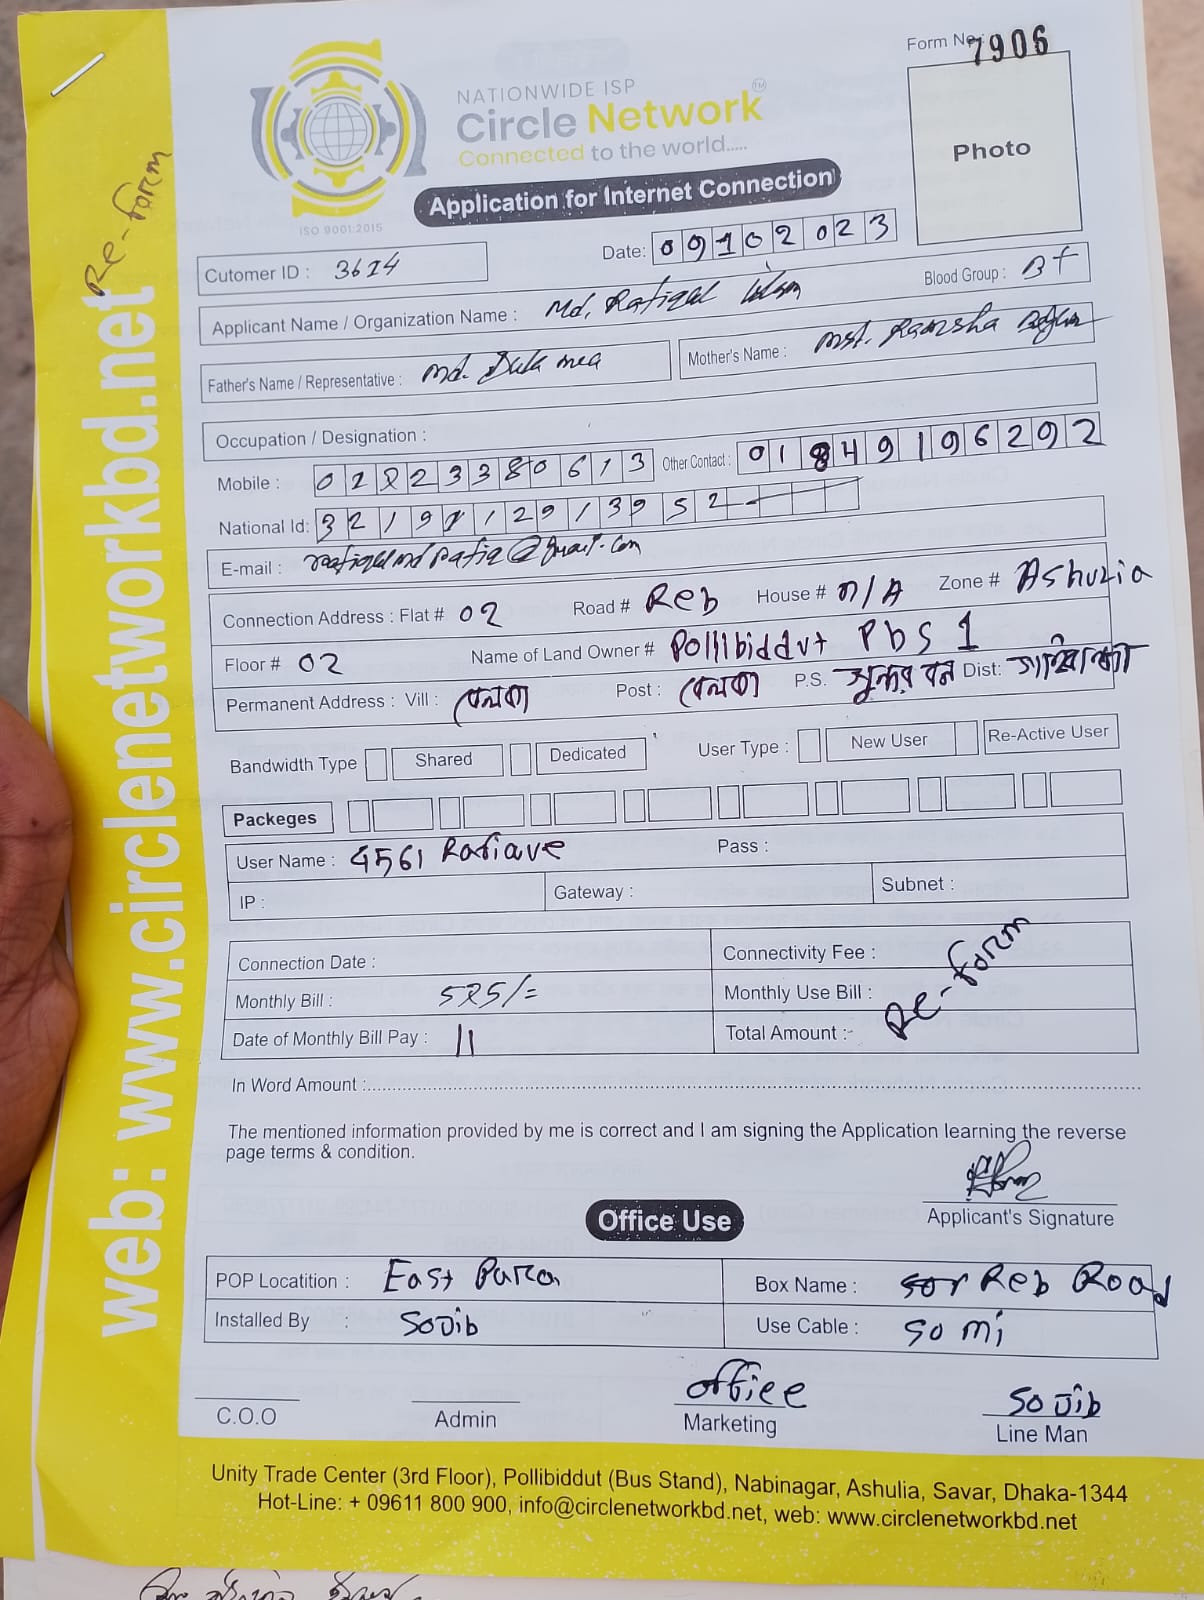 Form No: 7906
NATIONWIDE ISP
Circle Network TM
Connected to the world.....
ISO 9001:2015
Photo
Application for Internet Connection
Re-form
Date: 09102023
Cutomer ID : 3614
Blood Group : B+
Applicant Name / Organization Name : Md. Rafiqul Islam
Father's Name / Representative : Md. Dula mea
Mother's Name : Mst.
Occupation / Designation :
Mobile : Other Contact : 01849196292
National Id:
E-mail : @gmail.com
Connection Address : Flat # 02 Road # Reb House # n/A Zone # Ashulia
Floor # 02 Name of Land Owner # Pollibiddut Pbs 1
Permanent Address : Vill : বেলকা Post : বেলকা P.S. Dist:
Bandwidth Type Shared Dedicated User Type : New User Re-Active User
Packeges
User Name : Pass :
IP : Gateway : Subnet :
Connection Date : Connectivity Fee :
Monthly Bill : 525/= Monthly Use Bill :
Date of Monthly Bill Pay : 11 Total Amount :-
Re-form
In Word Amount :
The mentioned information provided by me is correct and I am signing the Application learning the reverse
page terms & condition.
Applicant's Signature
Office Use
POP Locatition : East Para Box Name : Reb Road
Installed By : Sojib Use Cable : 50 mi
C.O.O
Admin
office
Marketing
Sojib
Line Man
Unity Trade Center (3rd Floor), Pollibiddut (Bus Stand), Nabinagar, Ashulia, Savar, Dhaka-1344
Hot-Line: + 09611 800 900, info@circlenetworkbd.net, web: www.circlenetworkbd.net
web: www.circlenetworkbd.net